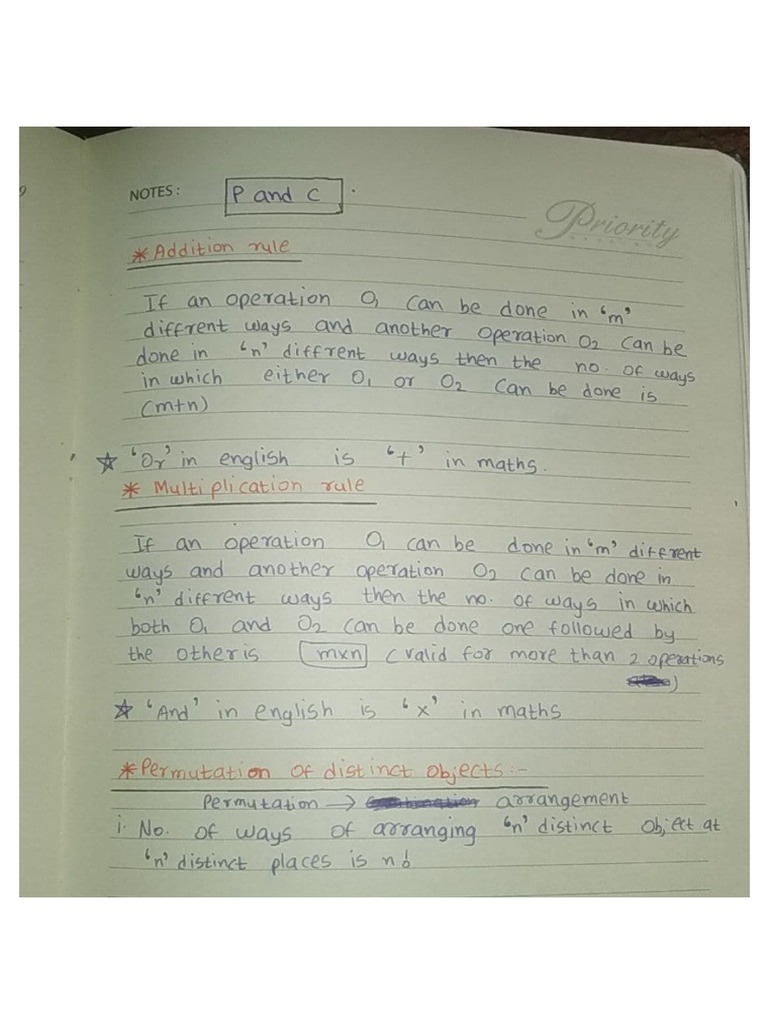 NOTES: P and C .
Priority
* Addition rule
If an operation O₁ can be done in 'm'
diffrent ways and another operation O2 can be
done in 'n' diffrent ways then the no. of ways
in which either O₁ or O2 can be done is
(m+n)
☆ 'Or' in english is '+' in maths.
* Multiplication rule
If an operation O₁ can be done in 'm' different
ways and another operation O2 can be done in
'n' diffrent ways then the no. of ways in which
both O₁ and O2 can be done one followed by
the other is mxn (valid for more than 2 operations
)
☆ 'And' in english is 'x' in maths
* Permutation of distinct objects:-
Permutation → arrangement
i. No. of ways of arranging 'n' distinct object at
'n' distinct places is n!